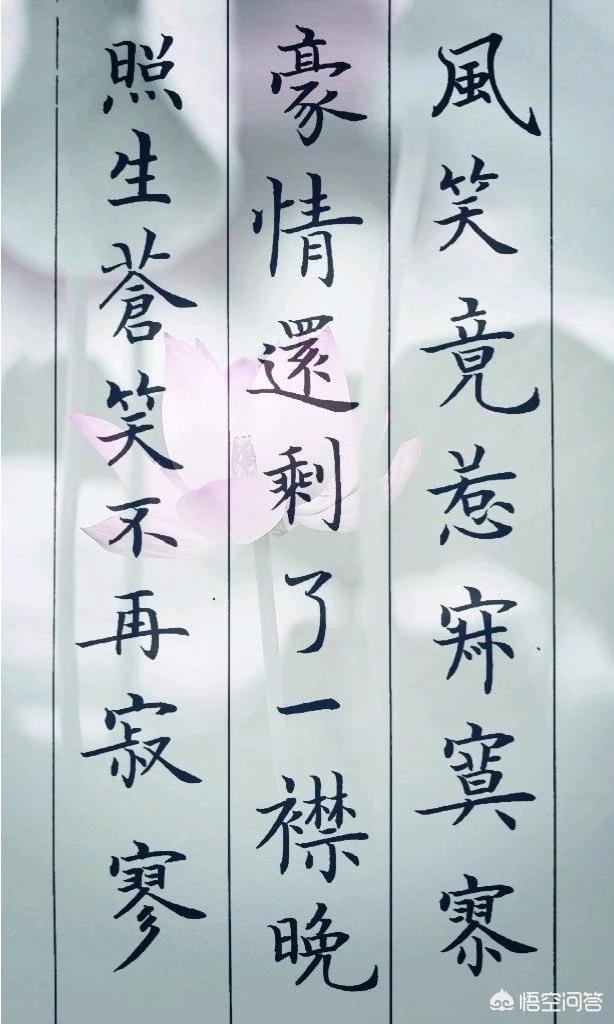 風笑竟惹寞
豪情還剩了一襟晚
照生蒼笑不再寂寥
悟空问答